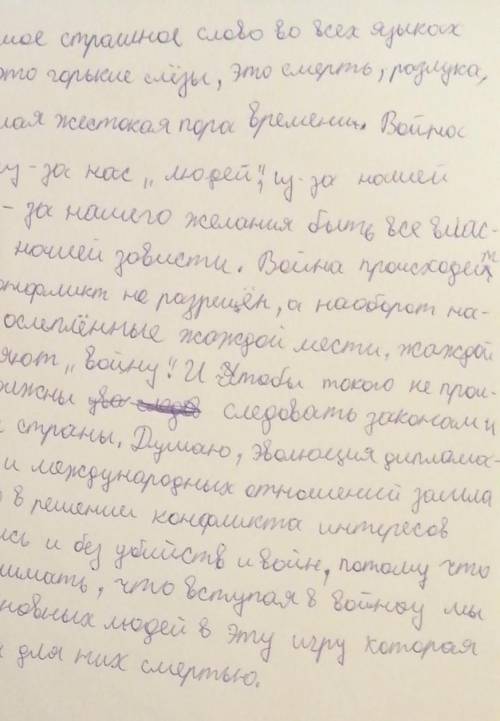 мое страшное слово во всех языках
это горькие слёзы, это смерть, разлука,
лая жестокая пора времени. Война
из-за нас „людей", из-за нашей
- за нашего желания быть все влас-
нашей зависти. Война происходит
онфликт не разрешён, а наоборот на-
ослеплённые жаждой мести, жаждой
яют „войну". И чтобы такого не прои-
олжны следовать законам и
страны. Думаю, эволюция диплома-
и международных отношений зашла
о в решении конфликта интересов
ись и без убийств и войн, потому что
нимать, что вступая в войну мы
новных людей в эту игру которая
для них смертью.